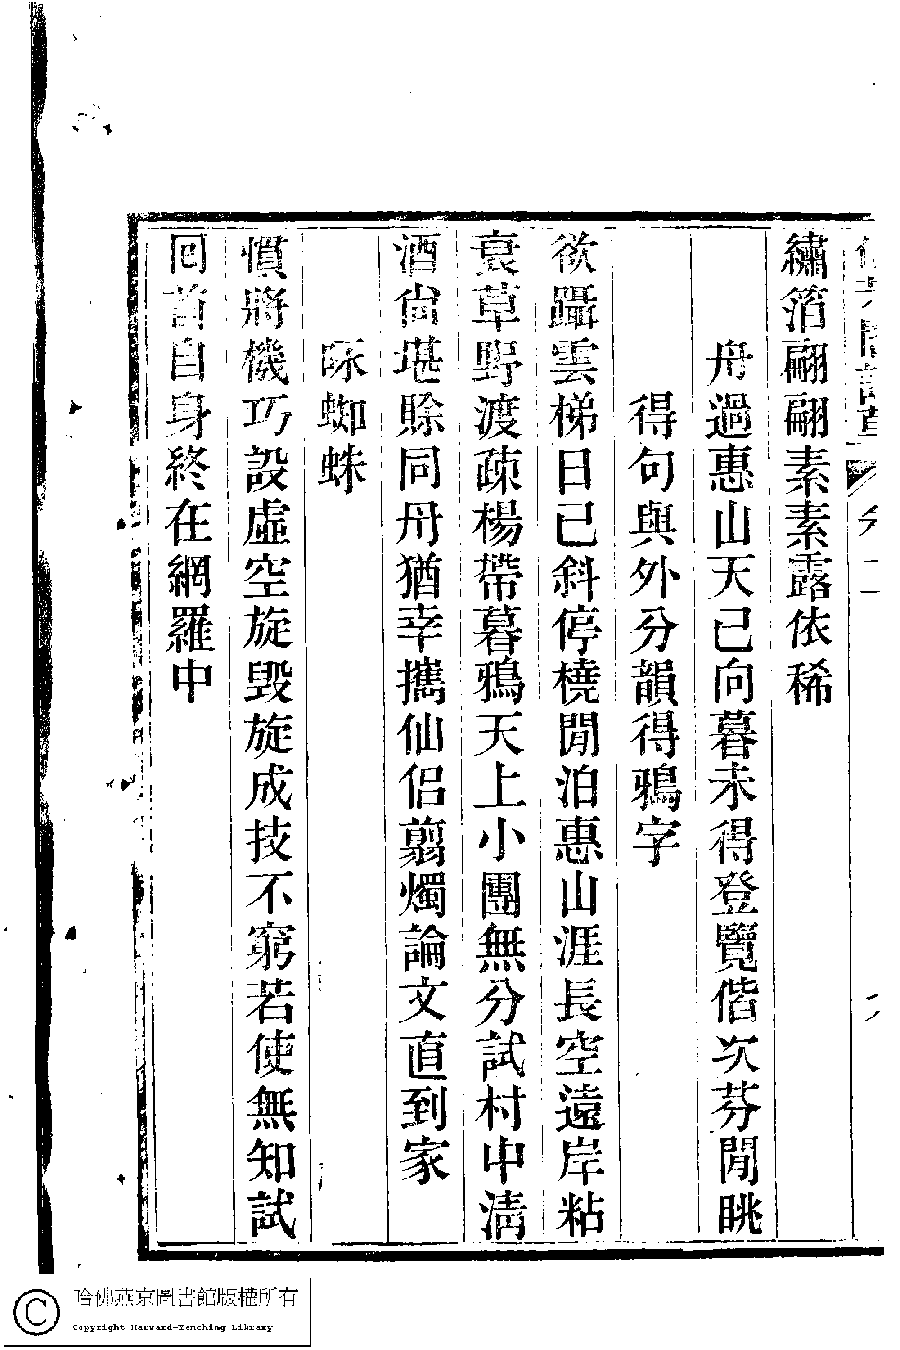 繡箔翩翩素素露依稀
舟過惠山天已向暮未得登覽偕次芬閒眺
得句與外分韻得鴉字
欲躡雲梯日已斜停橈閒泊惠山涯長空遠岸粘
衰草野渡疎楊帶暮鴉天上小團無分試村中淸
酒尙堪賖同舟猶幸攜仙侶翦燭論文直到家
詠蜘蛛
慣將機巧設虛空旋毀旋成技不窮若使無知試
回首自身終在網羅中
哈佛燕京圖書館版權所有
Copyright Harvard-Yenching Library